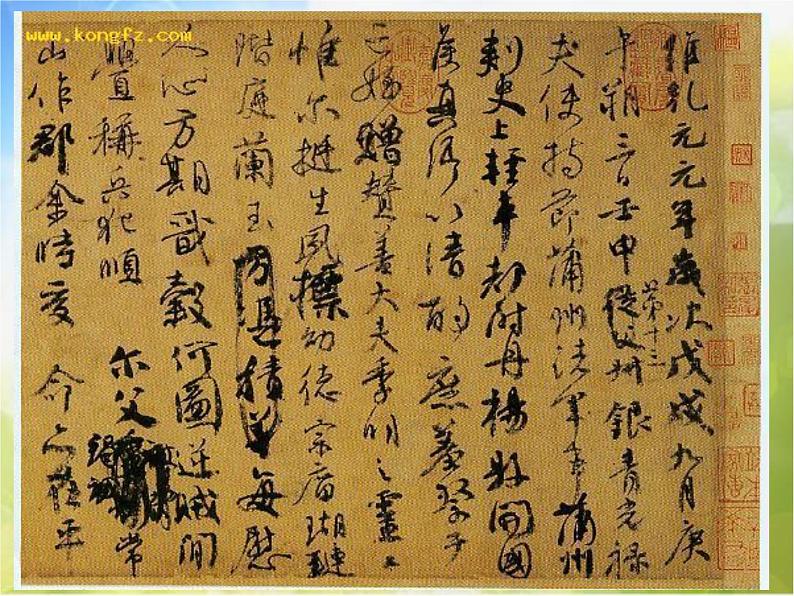 www.kongfz.com
維乾元元年歲次戊戌九月庚
午朔三日壬申第十三從父銀青光祿
夫使持節蒲州諸軍事蒲州
刺史上輕車都尉丹楊縣開國
侯真卿以清酌庶羞祭于
亡姪贈贊善大夫季明之靈曰
惟尔挺生夙標幼德宗廟瑚璉
階庭蘭玉方憑積善每慰
人心方期戩穀何圖逆賊閒
釁稱兵犯順尔父竭誠常
山作郡余時受命亦在平